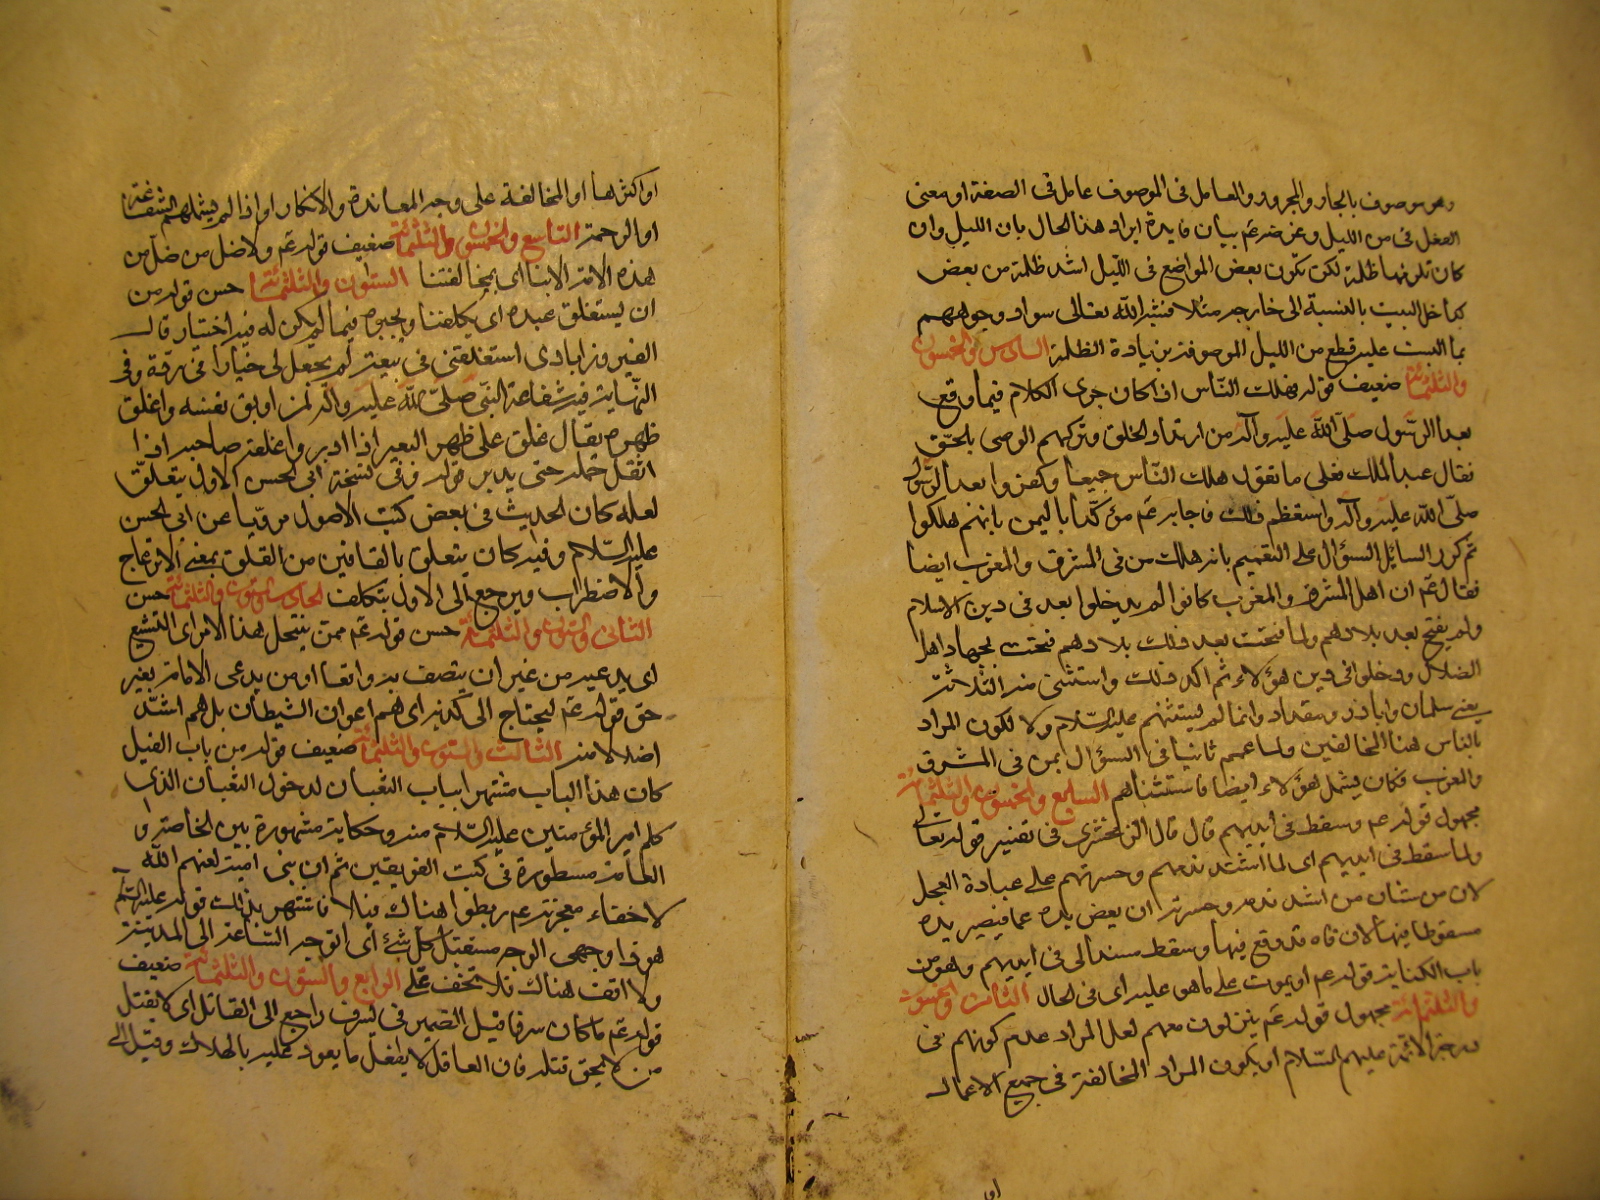 وهو موصوف بالجار والمجرور والعامل فى الموصوف عامل فى الصفة او معنى
الفعل فى من الليل وغرضه ع بيان فايدة ايراد هذا الحال بان الليل وان
كان كلها ظلمة لكن يكون بعض المواضع فى الليل اشد ظلمة من بعض
كداخل البيت بالنسبة الى خارجه مثلا فشبه الله تعالى سواد وجوههم
بما البست عليه قطع من الليل الموصوفة بزيادة الظلمة السادس والخمسون
والثلثمائة ضعيف قوله فهلك الناس اذا كان جرى الكلام فيما وقع
بعد الرسول صلى الله عليه وآله من ارتداد الخلق وتركهم الوصى بالحق
فقال عبد الملك فعلى ما تقول هلك الناس جميعا وكفروا بعد الرسول
صلى الله عليه وآله واستعظم ذلك فاجابه ع مؤكدا باليمين بانهم هلكوا
ثم كرر السايل السؤال على التعميم بانه هلك من فى المشرق والمغرب ايضا
فقال ع ان اهل المشرق والمغرب كانوا لم يدخلوا بعد فى دين الاسلام
ولم يفتح بعد بلادهم ولما فتحت بعد ذلك بلادهم فتحت بجهاد اهل
الضلال ودخلوا فى دين هؤلاء ثم اكد ذلك واستثنى منه الثلاثة
يعنى سلمان واباذر ومقداد وانما لم يستثنهم عليه السلام ولا لكون المراد
بالناس هنا المخالفين ولما عمم ثانيا فى السؤال بمن فى المشرق
والمغرب فكان يشمل هؤلاء ايضا فاستثناهم السابع والخمسون والثلثمائة
مجهول قوله ع وسقط فى ايديهم قال قال الزمخشرى فى تفسير قوله تعالى
ولما سقط فى ايديهم اى لما اشتد ندمهم وحسرتهم على عبادة العجل
لان من شان من اشتد ندمه وحسرته ان يعض يده عما فيصير يده
مسقوطا فيها لان فاه قد وقع فيها وسقط مسند الى فى ايديهم وهو من
باب الكناية قوله ع او يموت على ما هو عليه اى فى الحال الثامن والخمسون
والثلثمائة مجهول قوله ع ينزلون معهم لعل المراد عدم كونهم فى
درجة الائمة عليهم السلام او يكون المراد المخالفة فى جميع الاعمال
او
او اكثرها او المخالفة على وجه المعاندة والانكار او اذا لم يشملهم الشفاعة
او الرحمة التاسع والخمسون والثلثمائة ضعيف قوله ع ولا ضل من ضل من
هذه الامة الا بنا اى بمخالفتنا الستون والثلثمائة حسن قوله من
ان يستغلق عبده اى يكلفنا ويجبره فيما لم يكن له فيه اختيار قال
الفيروزابادى استغلقنى فى بيعته لم يجعل لى خيارا فى رده وفى
النهاية فيه شفاعة النبى صلى الله عليه وآله لمن اوبق نفسه واغلق
ظهره يقال غلق على ظهر البعير اذا ادبر واغلقه صاحبه اذا
اثقل حمله حتى يدبر قوله وفى نسخة ابى الحسن الاول يتعلق
لعله كان الحديث فى بعض كتب الاصول مرويا عن ابى الحسن
عليه السلام وفيه كان يتعلق بالقافين من القلق بمعنى الانزعاج
والاضطراب ويرجع الى الاول بتكلف الحادى والستون والثلثمائة حسن
الثانى والستون والثلثمائة حسن قوله ع ممن ينتحل هذا الامر اى التشيع
اى يدعيه من غير ان يتصف به واقعا او من يدعى الامامة بغير
حق قوله ع ليحتاج الى كذبه اى هم اعوان الشيطان بل هم اشد
اضلالا منه الثالث والستون والثلثمائة ضعيف قوله من باب الفيل
كان هذا الباب مشتهرا بباب الثعبان لدخول الثعبان الذى
كلم امير المؤمنين عليه السلام منه وحكايته مشهورة بين الخاصة و
العامة مسطورة فى كتب الفريقين ثم ان بنى امية لعنهم الله
لاخفاء معجزته ع ربطوا هناك فيلا فاشتهر بذلك قوله عليه السلام
هو فى اوجهى الوجه مستقبل كل شئ اى اتوجه الساعة الى المدينة
ولا اقف هناك فلا تخف على الرابع والستون والثلثمائة ضعيف
قوله ع ما كان سرفا قيل الضمير فى يسرف راجع الى القاتل اى لا يقتل
من لا يحق قتله فان العاقل لا يفعل ما يعود عليه بالهلاك وقيل الى